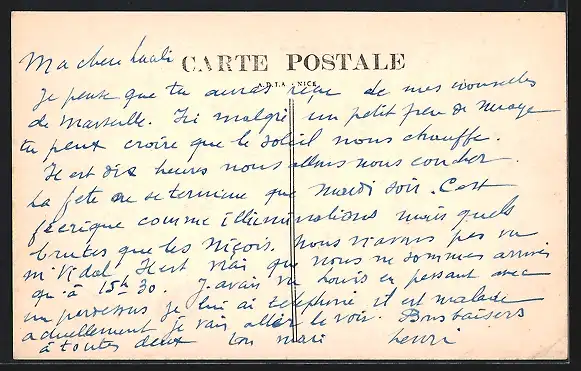 Ma chère
CARTE POSTALE
NICE
Je pense que tu auras reçu de mes nouvelles
de Marseille. Ici malgré un petit peu de nuage
tu peux croire que le soleil nous chauffe.
Il est dix heures nous allons nous coucher.
La fete ne se termine que mardi soir. C'est
féerique comme illuminations mais quels
brutes que les Niçois. Nous n'avons pas vu
Mr Vidal. Il est vrai que nous ne sommes arrivés
qu'à 15h30. J'avais vu Louis en passant avec
un je lui ai téléphoné il est malade
actuellement je vais aller le voir. Bons baisers
à toutes deux ton mari Henri